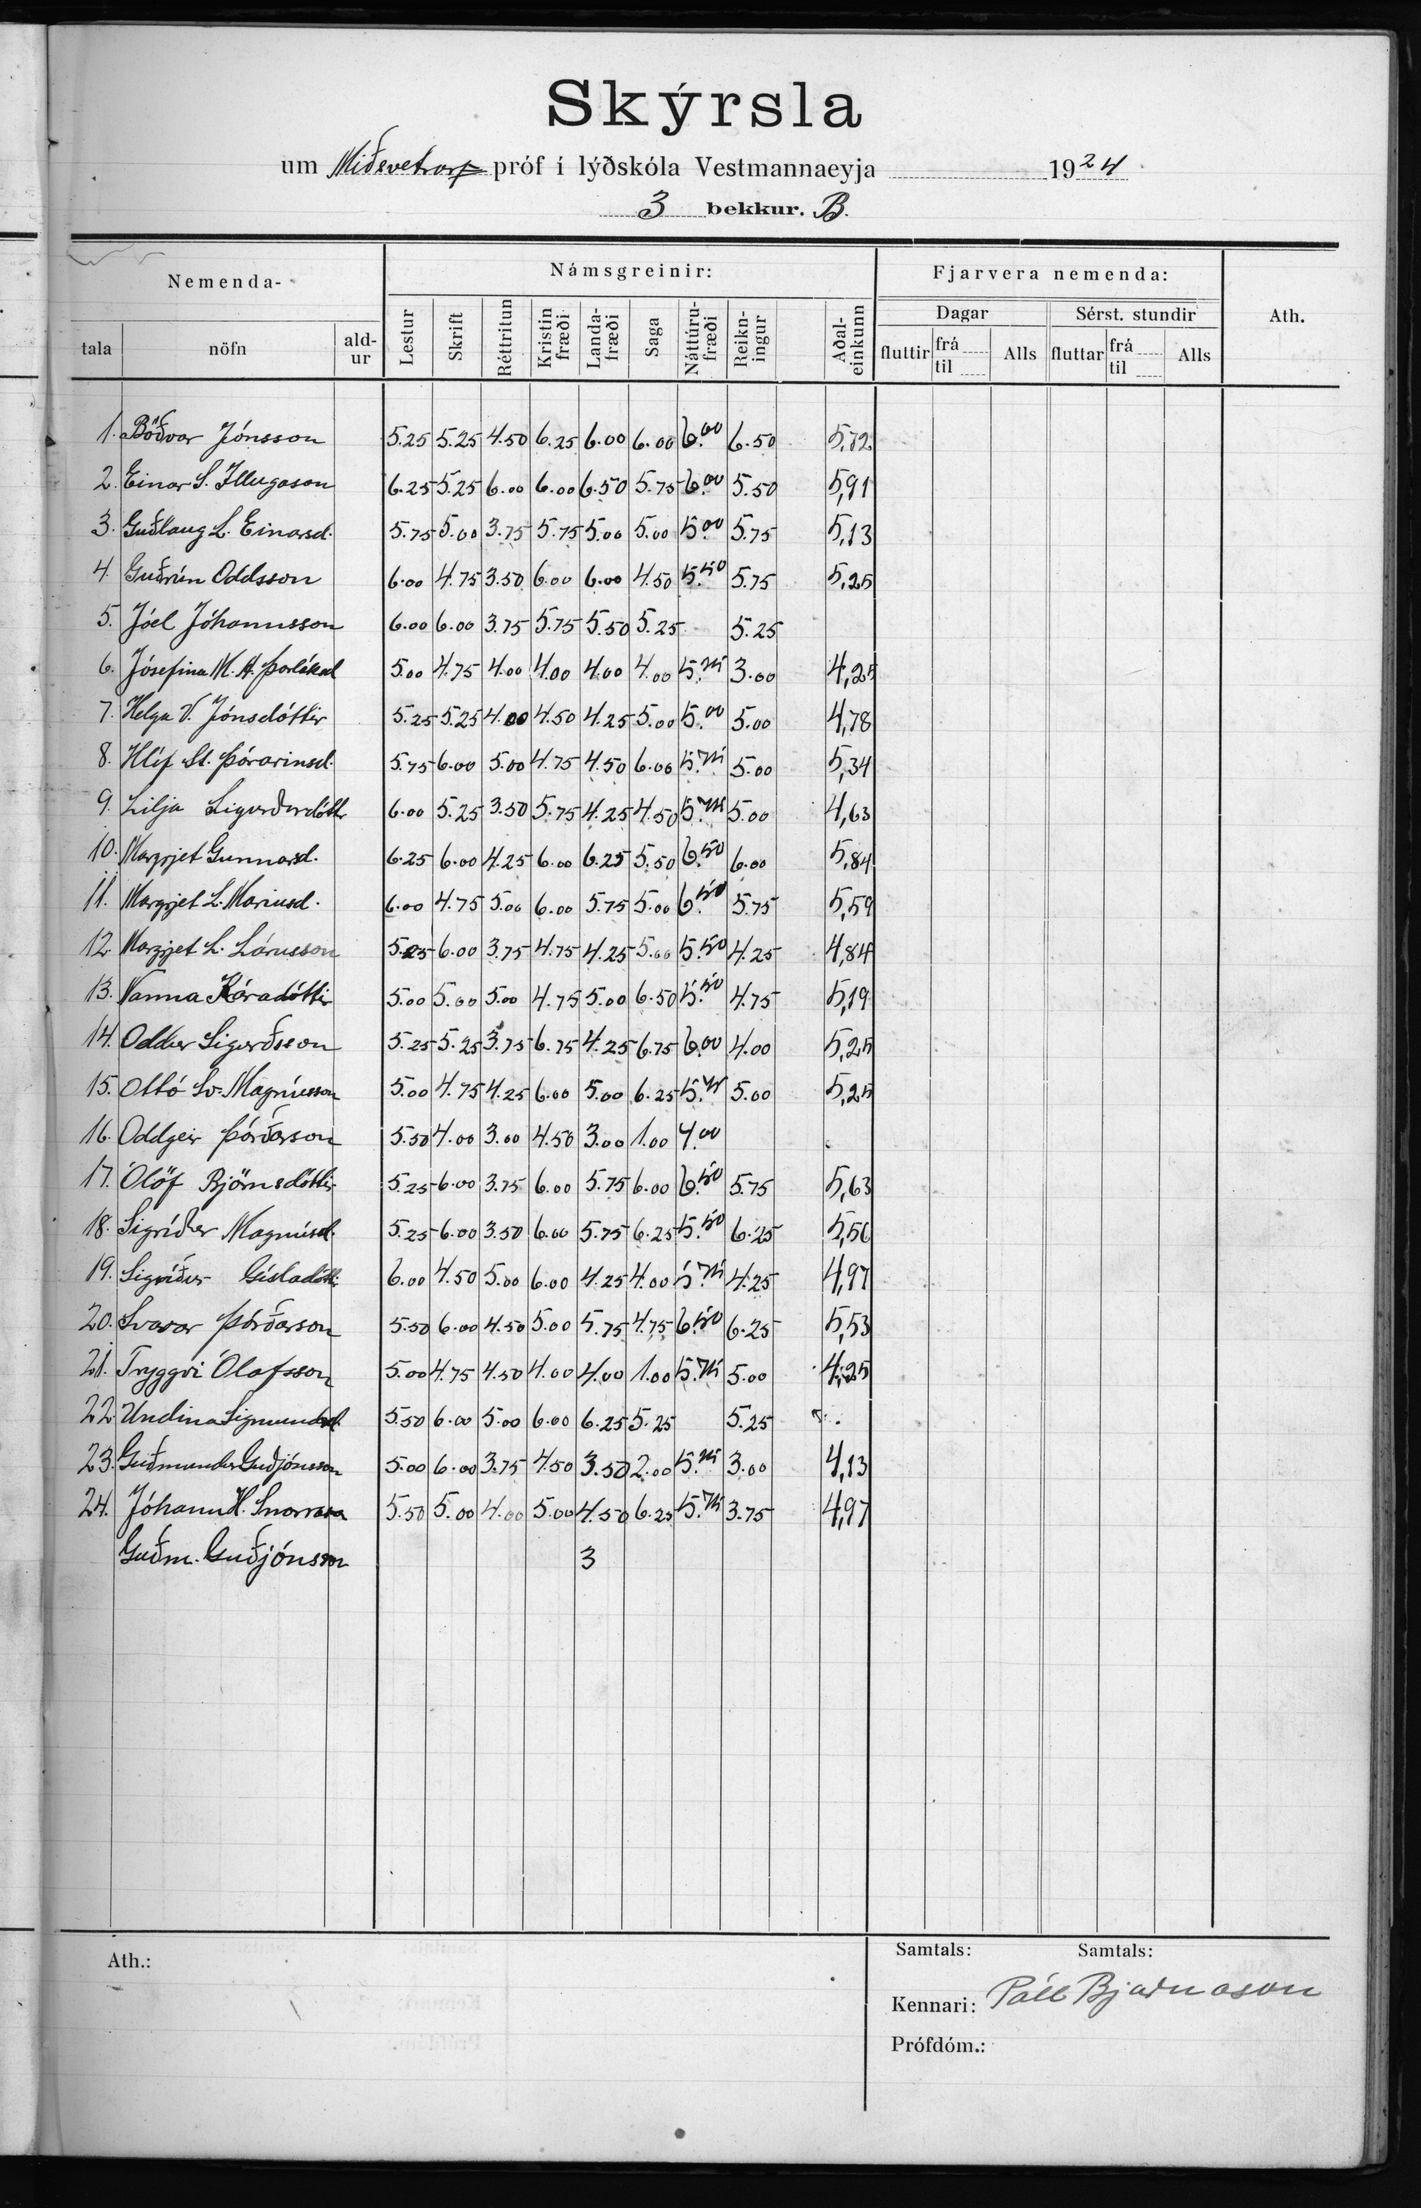 Skýrsla
um Miðsvetrar próf í lýðskóla Vestmannaeyja 1924
3 bekkur. B.
Nemenda- Námsgreinir: Fjarvera nemenda: Ath.
Dagar Sérst. stundir
tala nöfn ald-ur Lestur Skrift Réttritun Kristin fræði Landa-fræði Saga Náttúru-fræði Reikn-ingur Aðal-einkunn fluttir frá til Alls fluttar frá til Alls
1. Böðvar Jónsson 5.25 5.25 4.50 6.25 6.00 6.00 6.00 6.50 5,72
2. Einar S. Illugason 6.25 5.25 6.00 6.00 6.50 5.75 6.00 5.50 5,91
3. Guðlaug L. Einarsd. 5.75 5.00 3.75 5.75 5.00 5.00 5.00 5.75 5,13
4. Guðrún Oddsson 6.00 4.75 3.50 6.00 6.00 4.50 5.50 5.75 5,25
5. Jóel Jóhannsson 6.00 6.00 3.75 5.75 5.50 5.25 5.25
6. Jósefina M. A. Þorláksd 5.00 4.75 4.00 4.00 4.00 4.00 5.25 3.00 4,25
7. Helga V. Jónsdóttir 5.25 5.25 4.00 4.50 4.25 5.00 5.00 5.00 4,78
8. Hlíf St. Þórarinsd. 5.75 6.00 5.00 4.75 4.50 6.00 5.75 5.00 5,34
9. Lilja Sigurðardóttir 6.00 5.25 3.50 5.75 4.25 4.50 5.00 4,63
10. Margrjet Gunnarsd. 6.25 6.00 4.25 6.00 6.25 5.50 6.50 6.00 5,84
11. Margrjet L. Mariusd. 6.00 4.75 5.00 6.00 5.75 5.00 6.50 5.75 5,59
12. Margrjet L. Lárusson 5.25 6.00 3.75 4.75 4.25 5.00 5.50 4.25 4,84
13. Nanna Káradóttir 5.00 5.00 5.00 4.75 5.00 6.50 5.50 4.75 5,19
14. Oddur Sigurðsson 5.25 5.25 3.75 6.75 4.25 6.75 6.00 4.00 5,25
15. Ottó Sv. Magnússon 5.00 4.75 4.25 6.00 5.00 6.25 5.75 5.00 5,25
16. Oddgeir Þórðarson 5.50 4.00 3.00 4.50 3.00 1.00 4.00
17. Ólöf Björnsdóttir 5.25 6.00 3.75 6.00 5.75 6.00 6.50 5.75 5,63
18. Sigríður Magnúsd. 5.25 6.00 3.50 6.00 5.75 6.25 5.50 6.25 5,56
19. Sigríður Gísladóttir 6.00 4.50 5.00 6.00 4.25 4.00 5.75 4.25 4,97
20. Svavar Þórðarson 5.50 6.00 4.50 5.00 5.75 4.75 6.50 6.25 5,53
21. Tryggvi Ólafsson 5.00 4.75 4.50 4.00 4.00 1.00 5.75 5.00 4,25
22. Undina Sigmundsd. 5.50 6.00 5.00 6.00 6.25 5.25 5.25
23. Guðmundur Guðjónsson 5.00 6.00 3.75 4.50 3.50 2.00 5.25 3.00 4,13
24. Jóhann H. Snorrason 5.50 5.00 4.00 5.00 4.50 6.25 5.75 3.75 4,97
Guðm. Guðjónsson 3
Ath.: Samtals: Samtals:
Kennari: Páll Bjarnason
Prófdóm.: